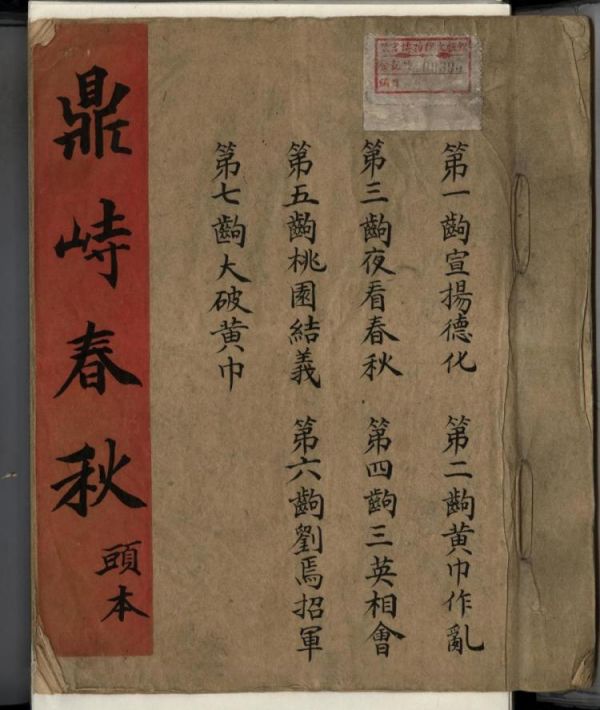 第一齣宣揚德化 第二齣黄巾作亂
第三齣夜看春秋 第四齣三英相會
第五齣桃園結義 第六齣劉焉招軍
第七齣大破黄巾
鼎峙春秋 頭本